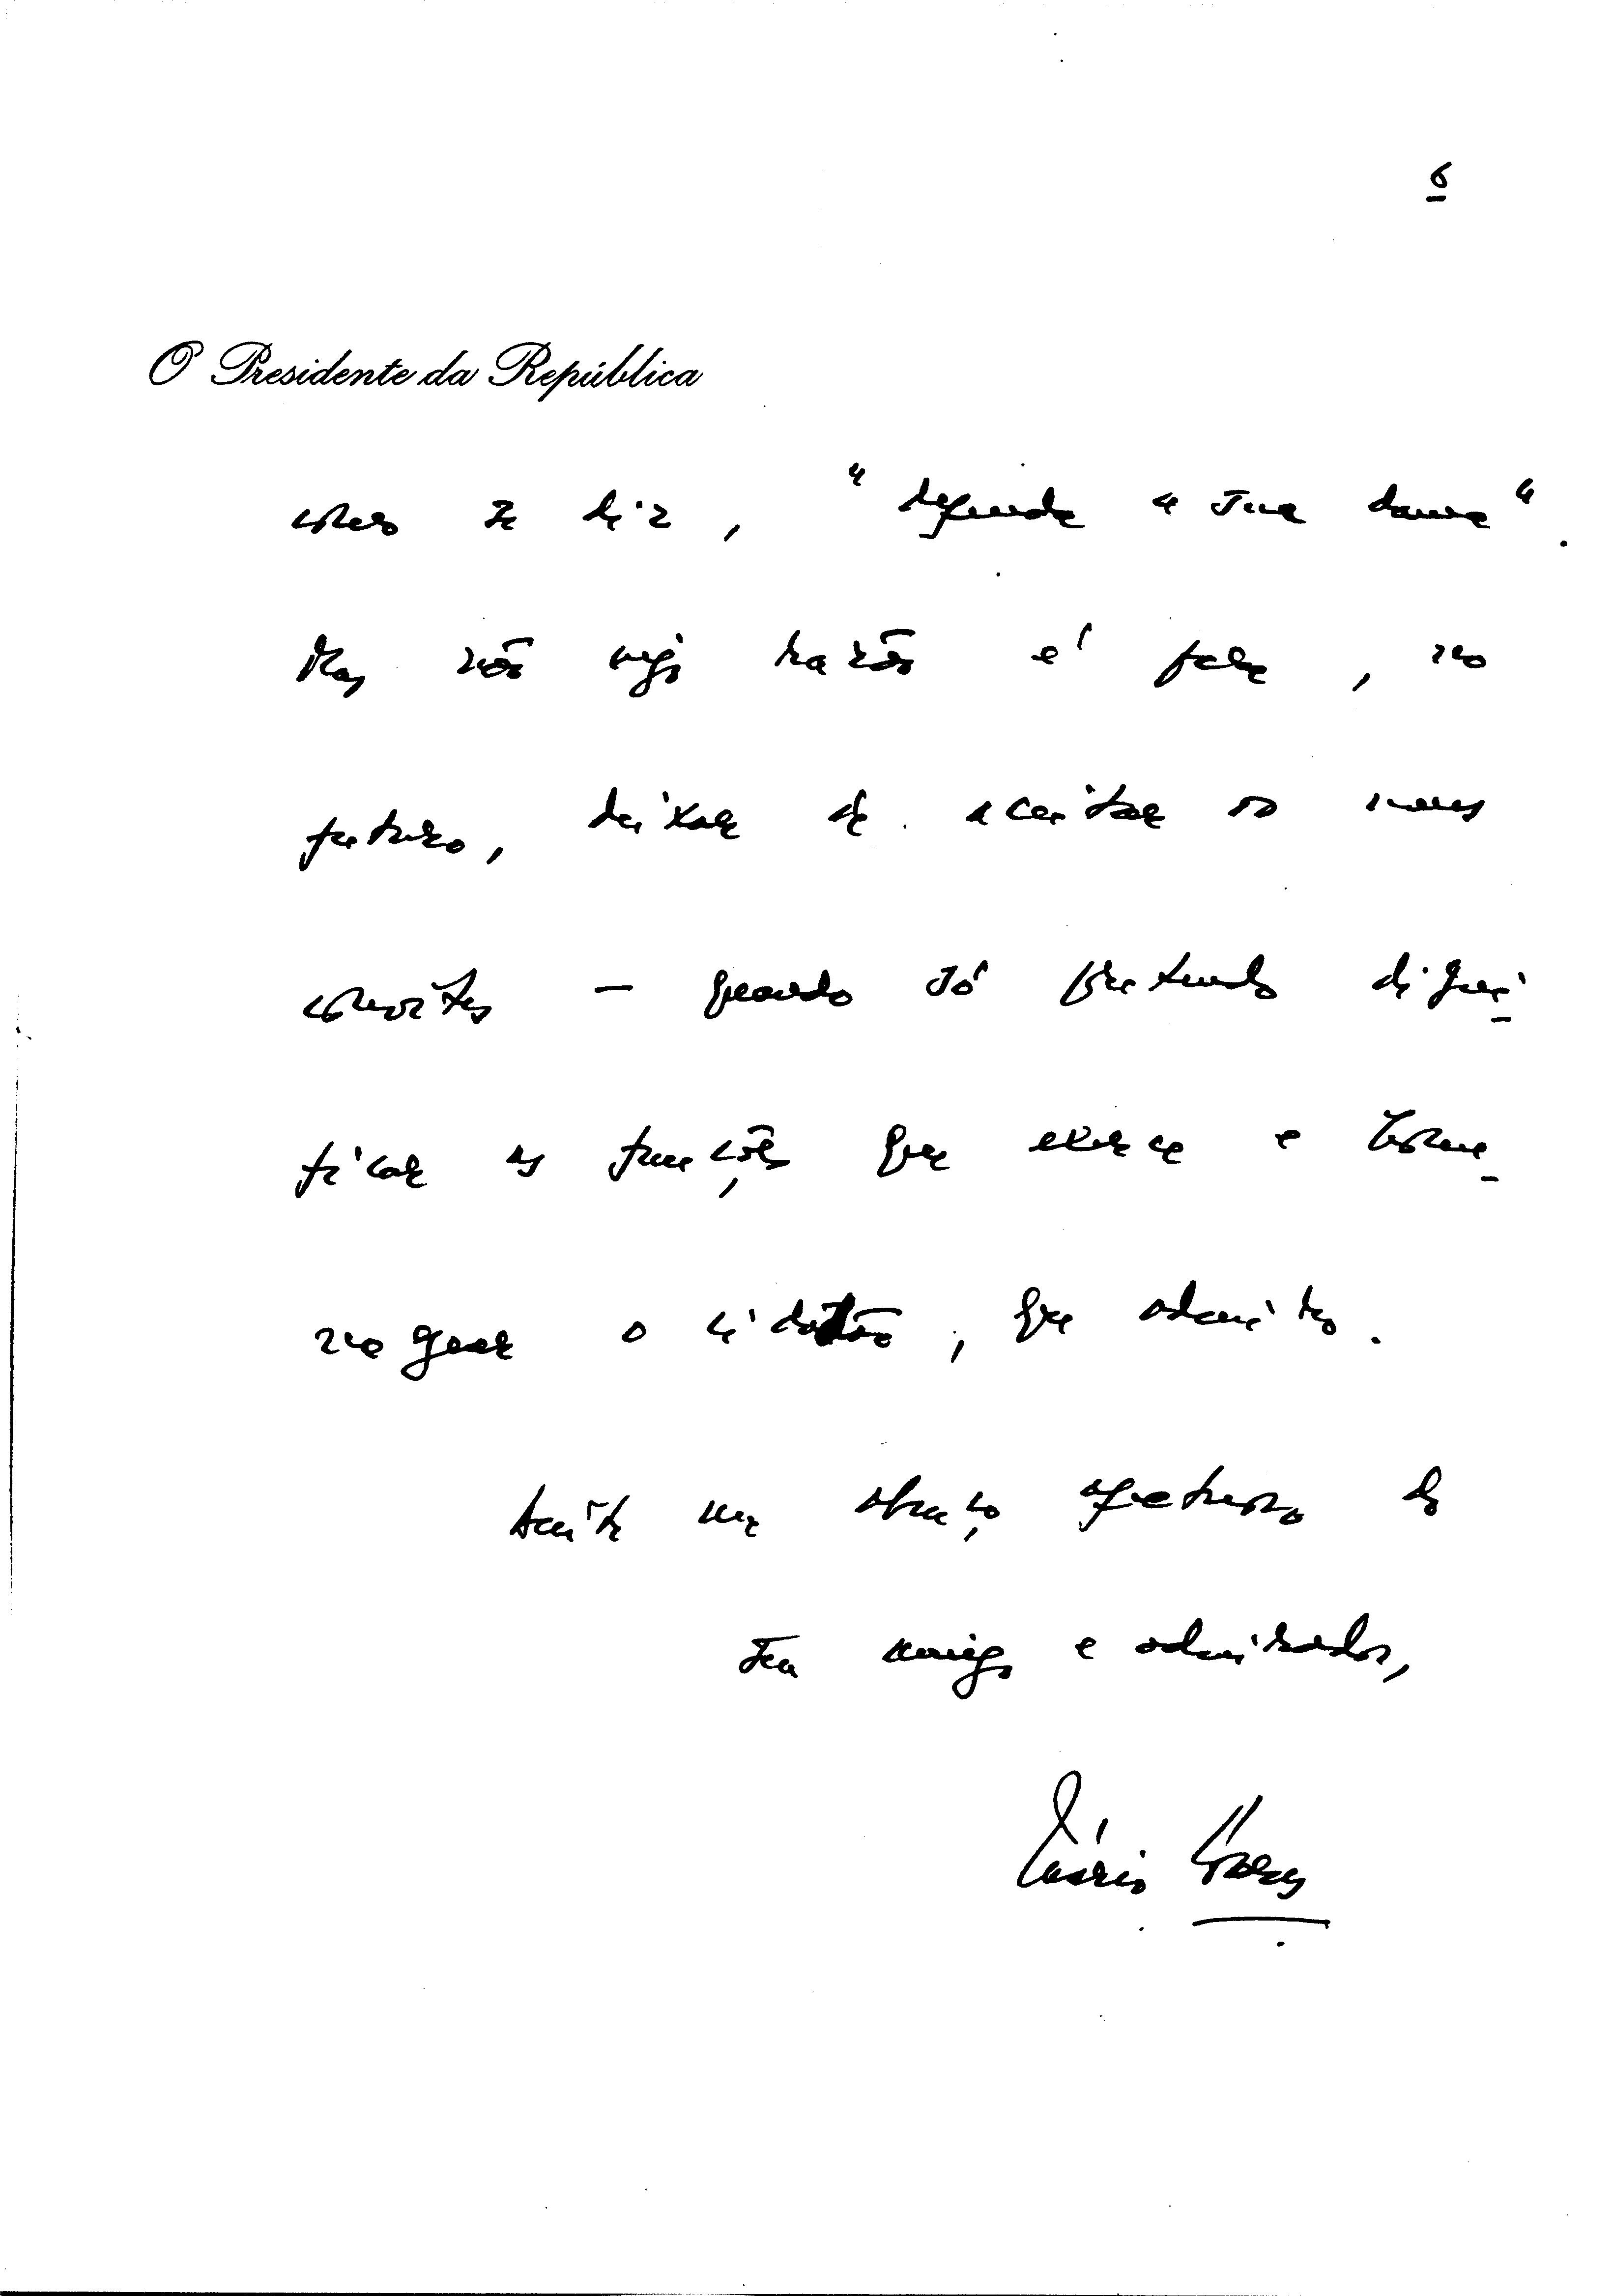 6
O Presidente da República
como se diz, "defenda a sua dama".
Mas não vejo razão é para, no
futuro, deixar de aceitar os meus
convites — quando só pretendo digni-
ficar as funções que exerce e home-
nagear o cidadão, que admiro.
Aceite um abraço afectuoso do
seu amigo e admirador,
Mário Soares